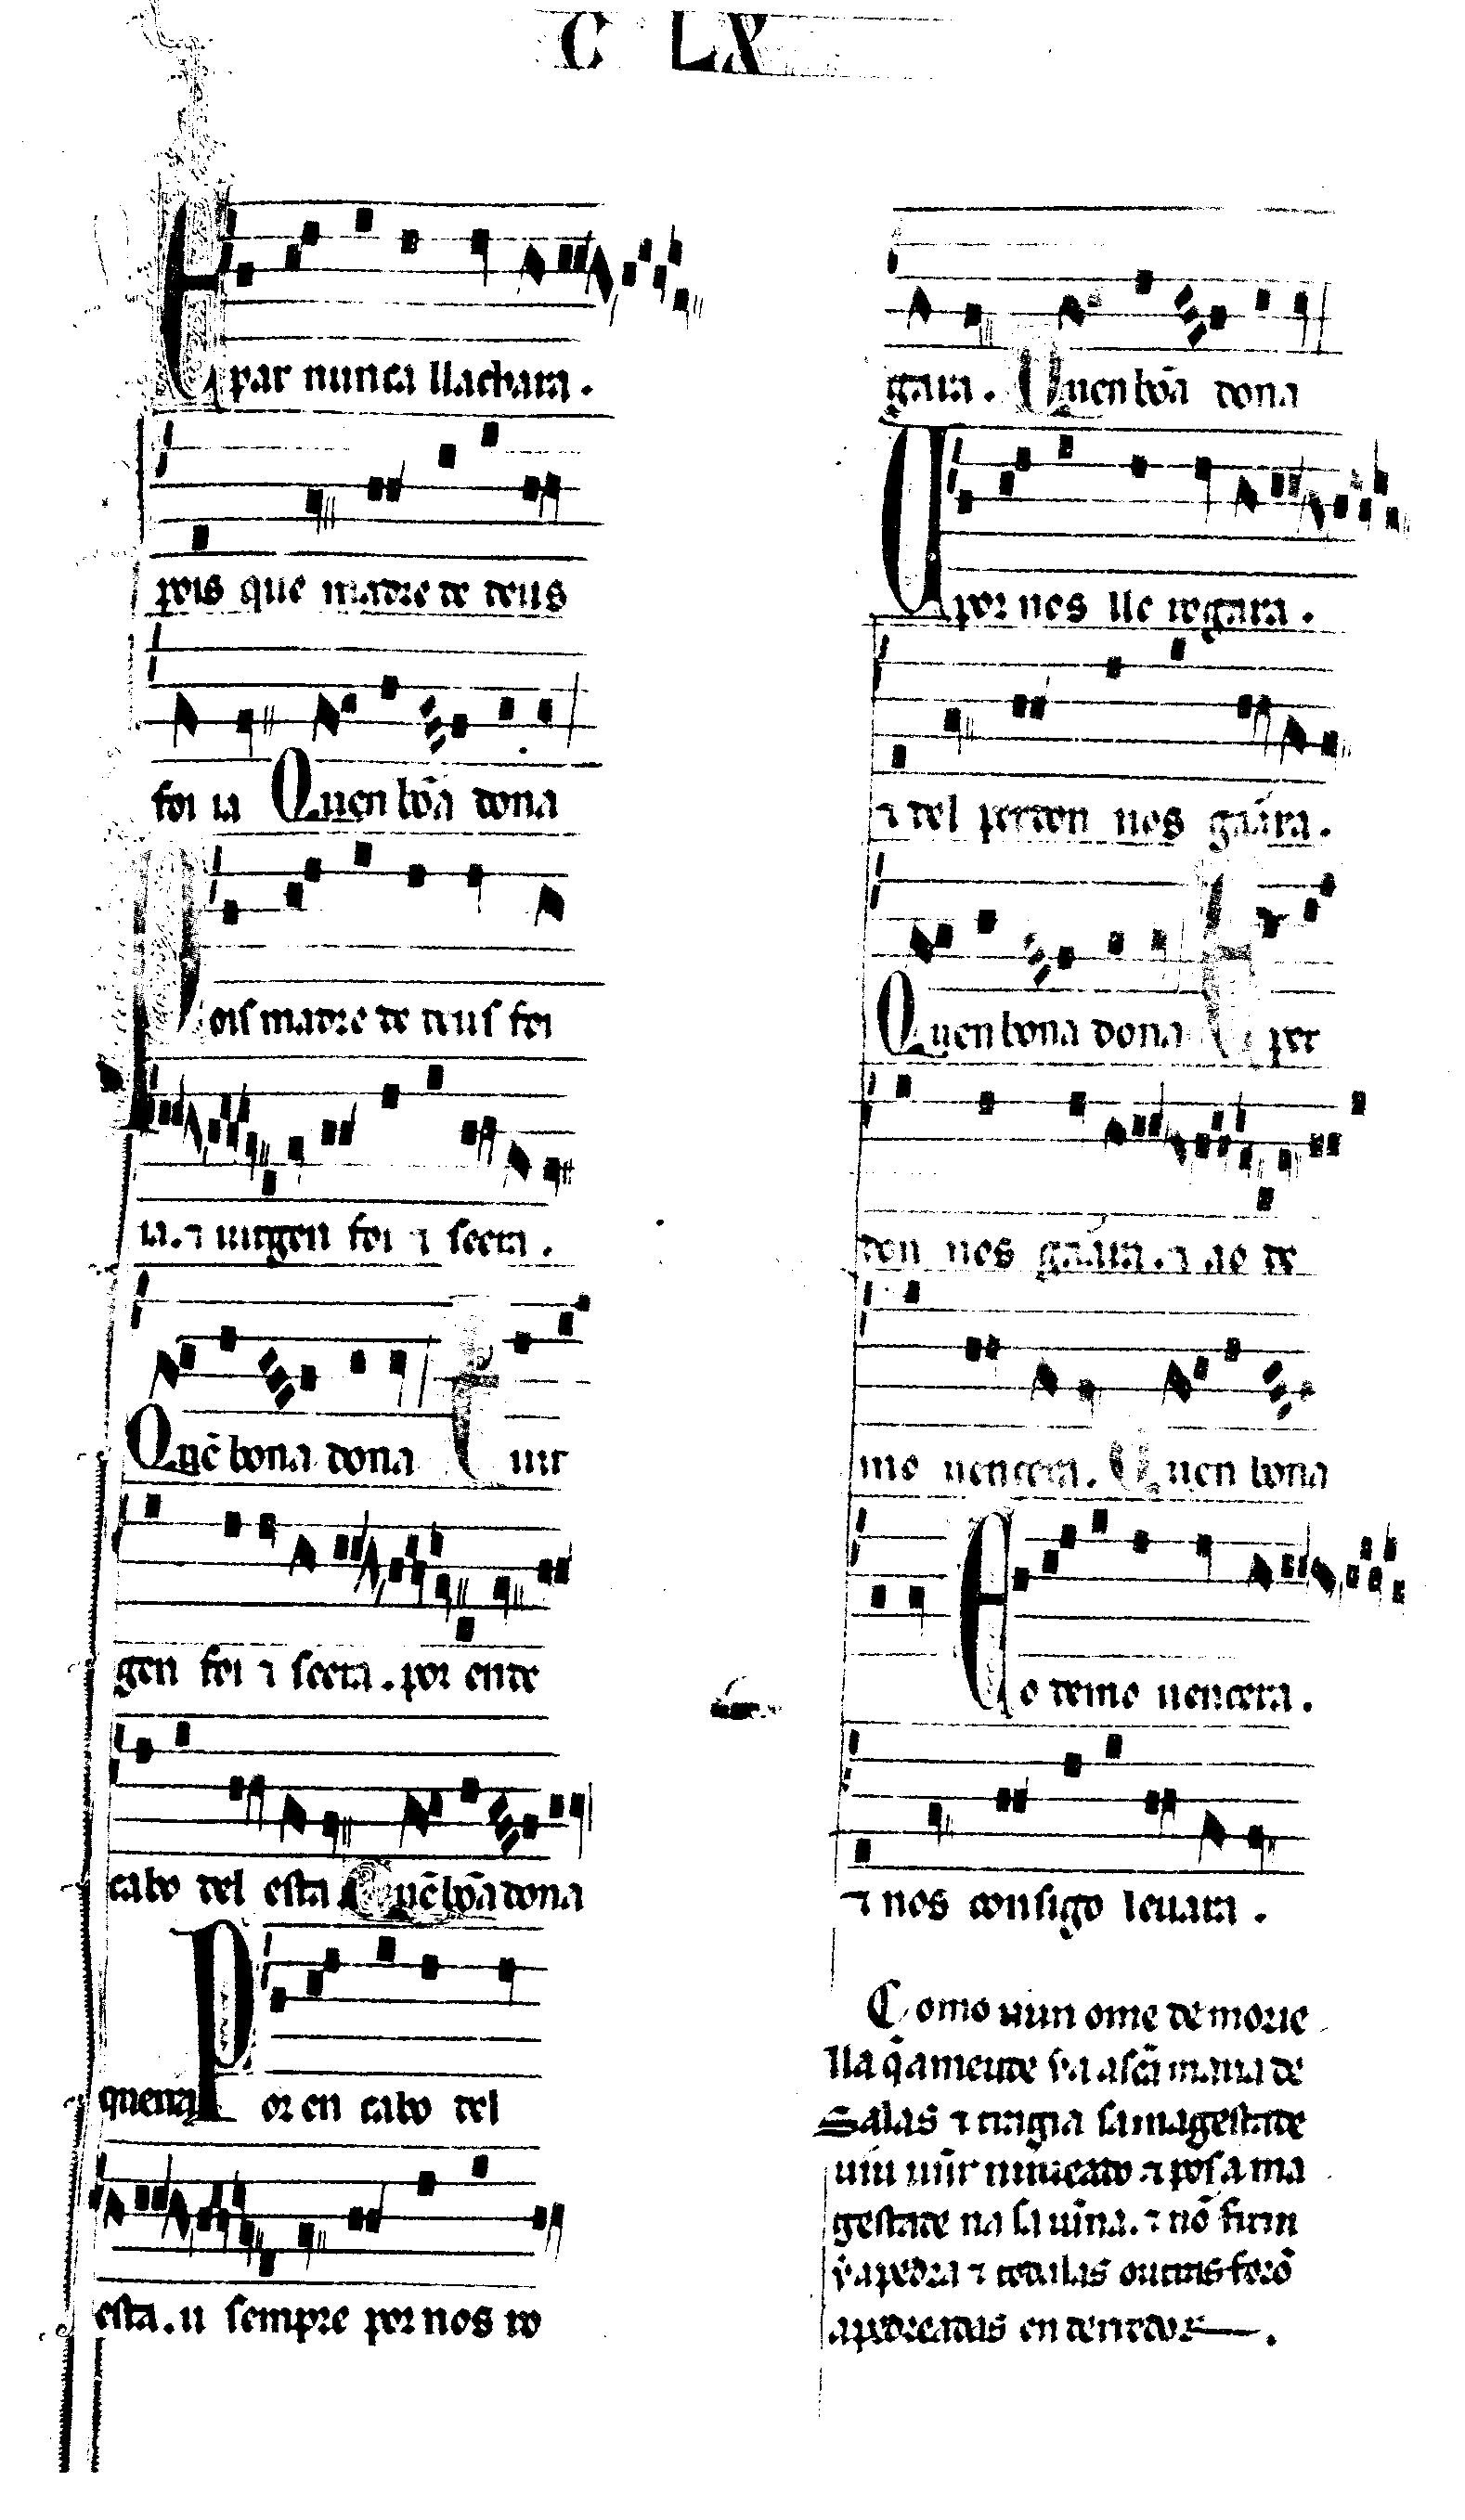 C LX
E par nunca ll achara.
pois que madre de deus
foi ia Quen bõa dona
Pois madre de deus foi
ia. ⁊ uirgen foi ⁊ seera.
Quẽ bona dona E uir
gen foi ⁊ seera. por ende
cabo del esta Quẽ bõa dona
querra Por en cabo del
esta. u sempre por nos ro
gara. Quen bõa dona
U por nos lle rogara.
⁊ del perdon nos gaãra.
Quen bona dona E per
don nos gaãra. ⁊ ao de
mo uencera. Quen bona
Ao demo uencera.
⁊ nos consigo leuara.
Como uun ome de morie
lla q̃ a meude ya a sc̃a maria de
Salas ⁊ tragia sa magestade
gestade na sa uin̄a. ⁊ nõ firiu
y a pedra ⁊ todalas outras forõ
apedreadas en derredor.